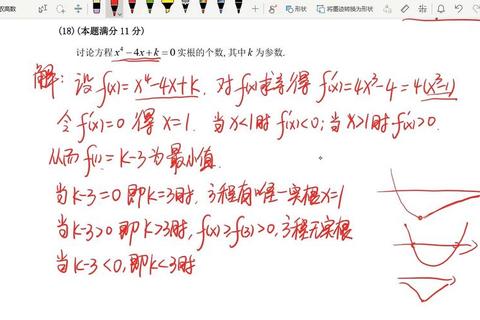 形状
将墨迹转换为形状
(18) (本题满分 11 分)
讨论方程 x⁴-4x+k=0 实根的个数,其中 k 为参数.
解: 设 f(x)=x⁴-4x+k. 对f(x)求导得 f'(x)=4x³-4=4(x³-1)
令 f'(x)=0 得 x=1. 当 x<1时 f'(x)<0;当 x>1时 f'(x)>0.
从而 f(1)=k-3 为最小值.
当 k-3=0 即 k=3时, 方程有唯一实根 x=1
当 k-3>0 即 k>3时, f(x)≥f(3)>0, 方程无实根
当 k-3<0, 即 k<3时